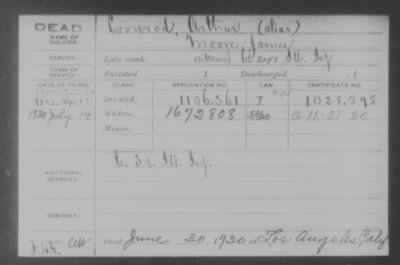 DEAD
NAME OF SOLDIER:
Coonrod, Arthur (alias)
Moore, James
SERVICE:
Late rank, Regt Ill. Inf
TERM OF SERVICE:
Enlisted , 1 Discharged , 1
DATE OF FILING. CLASS. APPLICATION NO. LAW. CERTIFICATE NO.
Invalid, 1106,561 J 1028,595
1930 July 14 Widow, 1672808 A 11-28-30
Minor,
ADDITIONAL SERVICES:
C. Ill. Inf.
REMARKS:
Died June 30, 1930, at Los Angeles, Calif